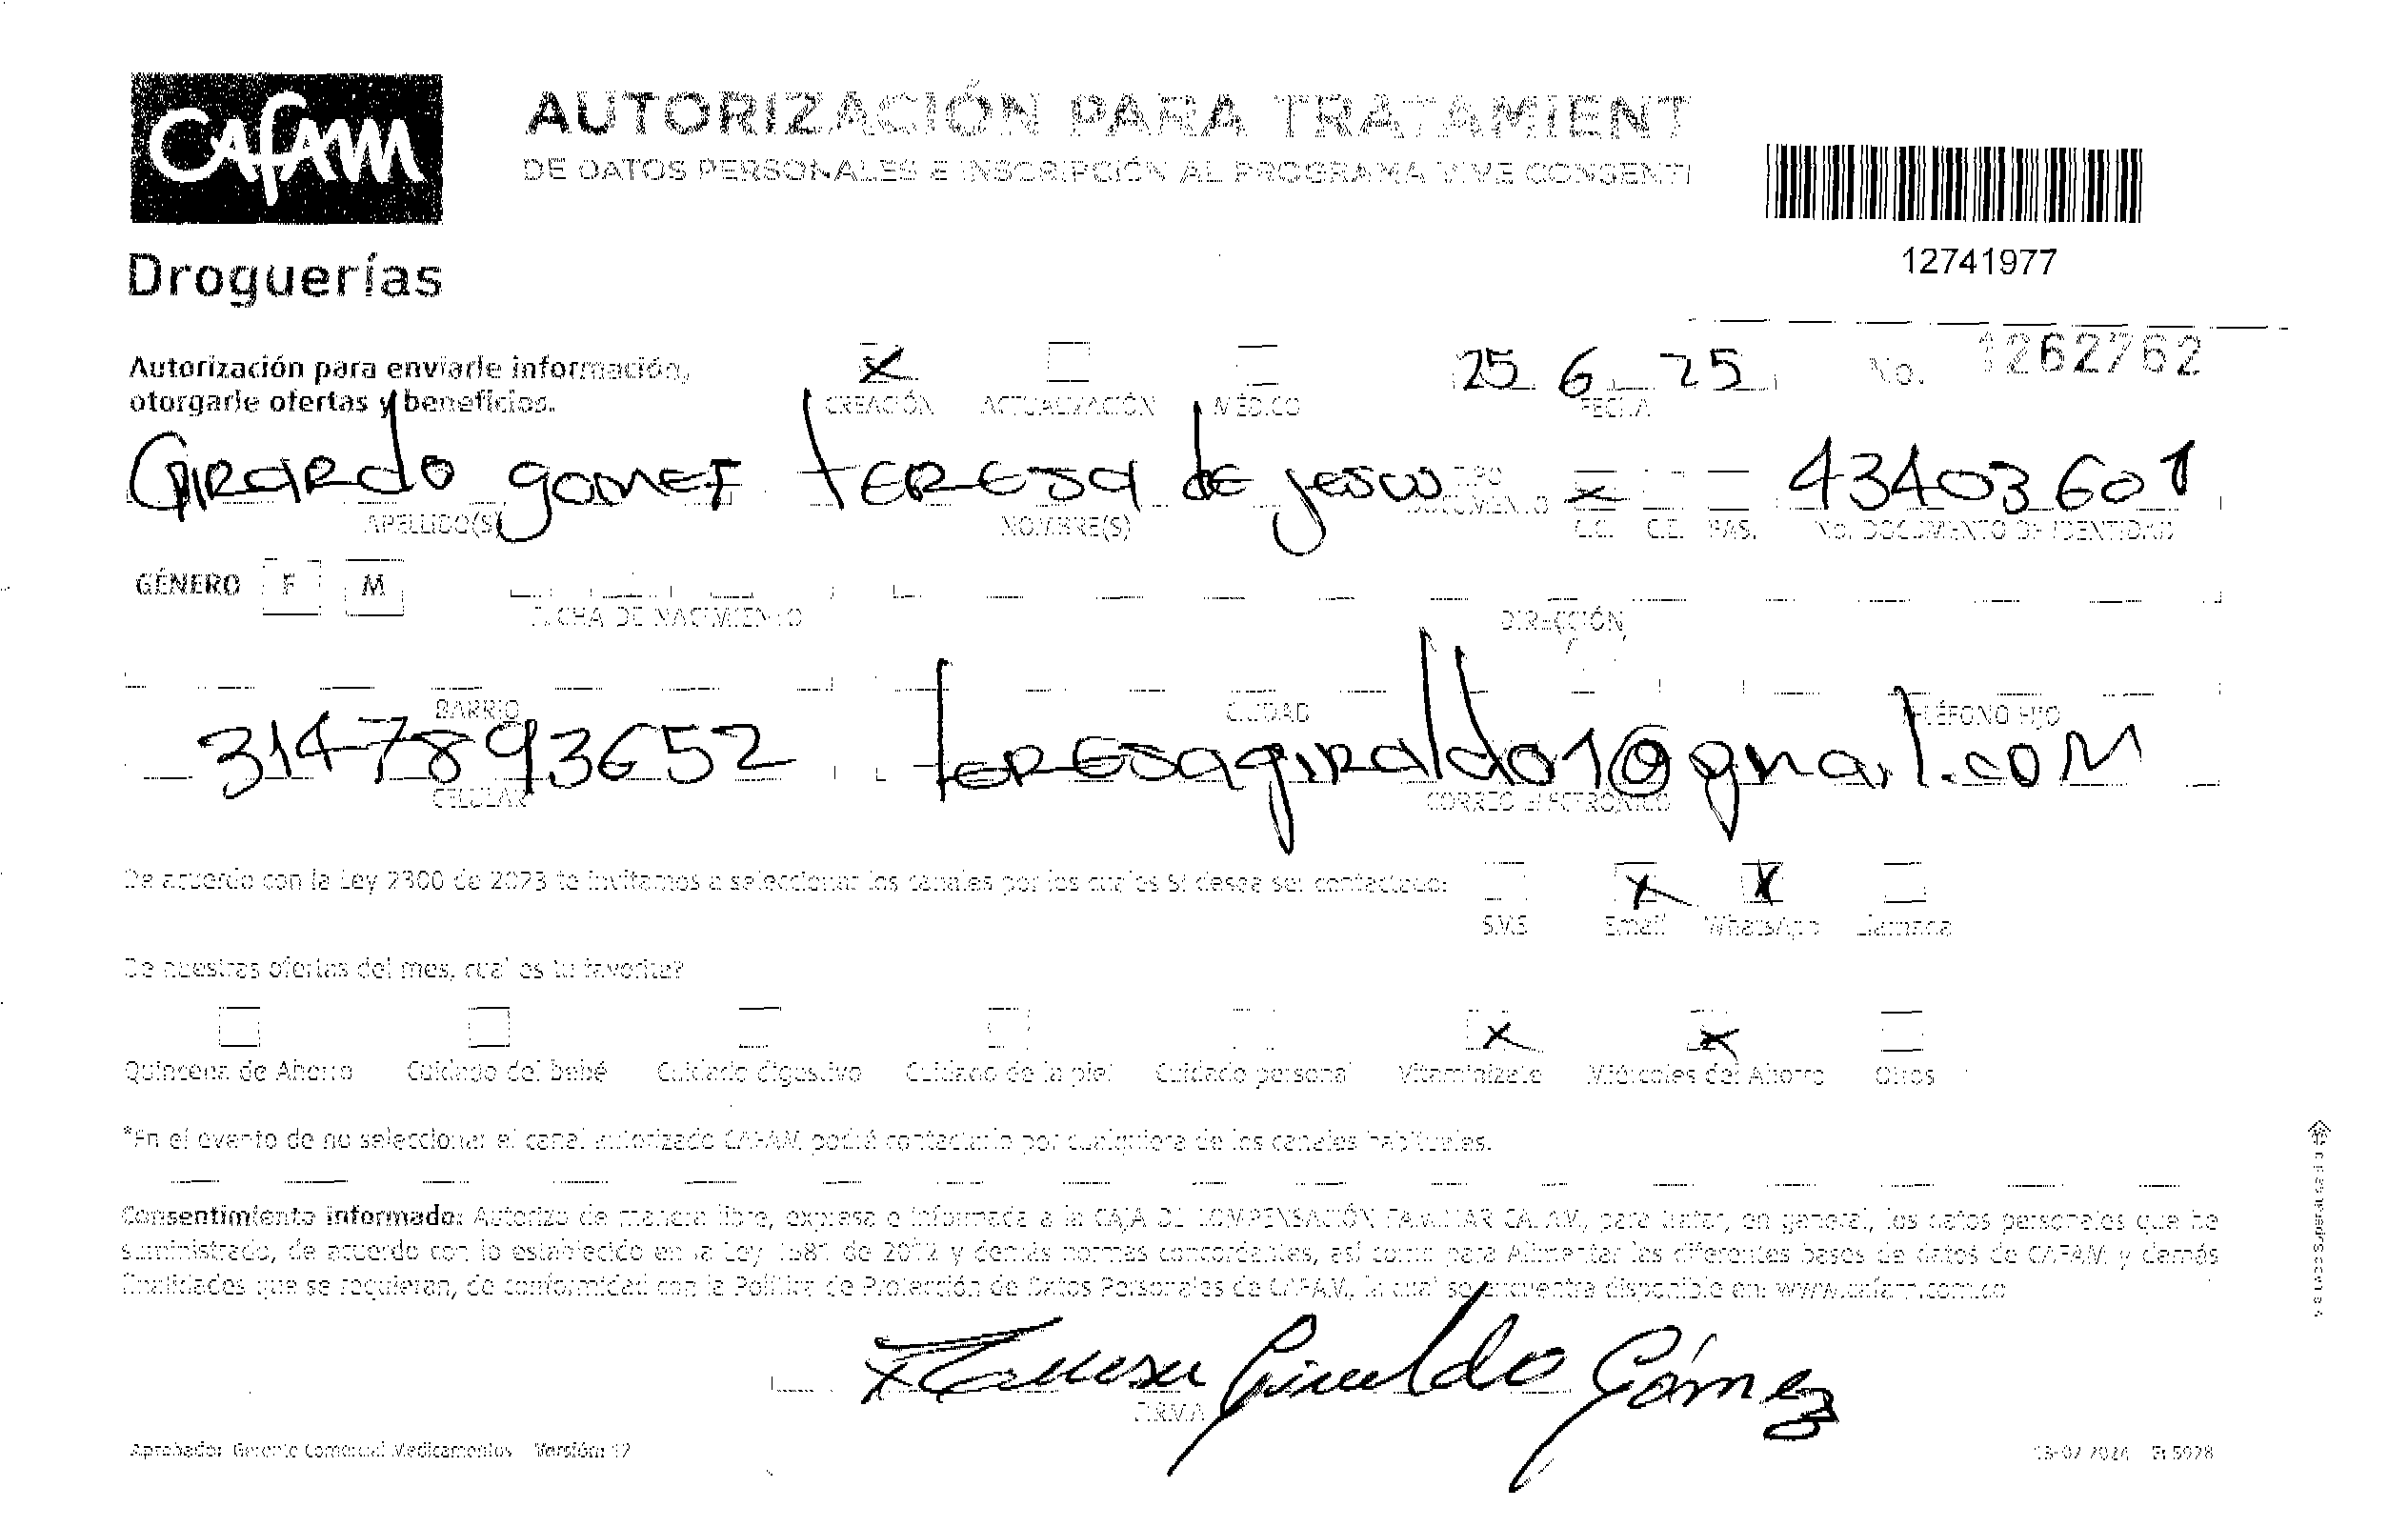 CAFAM
Droguerías
AUTORIZACIÓN PARA TRATAMIENT
DE DATOS PERSONALES E INSCRIPCIÓN AL PROGRAMA VIVE CONSENTI
12741977
Autorización para enviarle información,
otorgarle ofertas y beneficios.
X CREACIÓN ACTUALIZACIÓN MÉDICO
25 6 25
FECHA
No. 1262762
GIRARDO gomez TERESA de jesus TIPO DOCUMENTO X 43403601
APELLIDO(S) NOMBRE(S) C.C. C.E. PAS. No. DOCUMENTO DE IDENTIDAD
GÉNERO F M
FECHA DE NACIMIENTO DIRECCIÓN
BARRIO CIUDAD TELÉFONO FIJO
3147893652 teresagiraldo1@gmail.com
CELULAR CORREO ELECTRÓNICO
De acuerdo con la Ley 2300 de 2023 te invitamos a seleccionar los canales por los cuales SI desea ser contactado:
X X
SMS Email WhatsApp Llamada
De nuestras ofertas del mes, cual es tu favorita?
X X
Quincena de Ahorro Cuidado del bebé Cuidado digestivo Cuidado de la piel Cuidado personal Vitaminízate Miércoles del Ahorro Otros
*En el evento de no seleccionar el canal autorizado CAFAM, podrá contactarlo por cualquiera de los canales habituales.
Consentimiento informado: Autorizo de manera libre, expresa e informada a la CAJA DE COMPENSACIÓN FAMILIAR CAFAM, para tratar, en general, los datos personales que he
suministrado, de acuerdo con lo establecido en la Ley 1581 de 2012 y demás normas concordantes, así como para Alimentar las diferentes bases de datos de CAFAM y demás
finalidades que se requieran, de conformidad con la Política de Protección de Datos Personales de CAFAM, la cual se encuentra disponible en: www.cafam.com.co
Teresa Giraldo Gómez
FIRMA
Aprobador Gerente Comercial Medicamentos Versión: 12